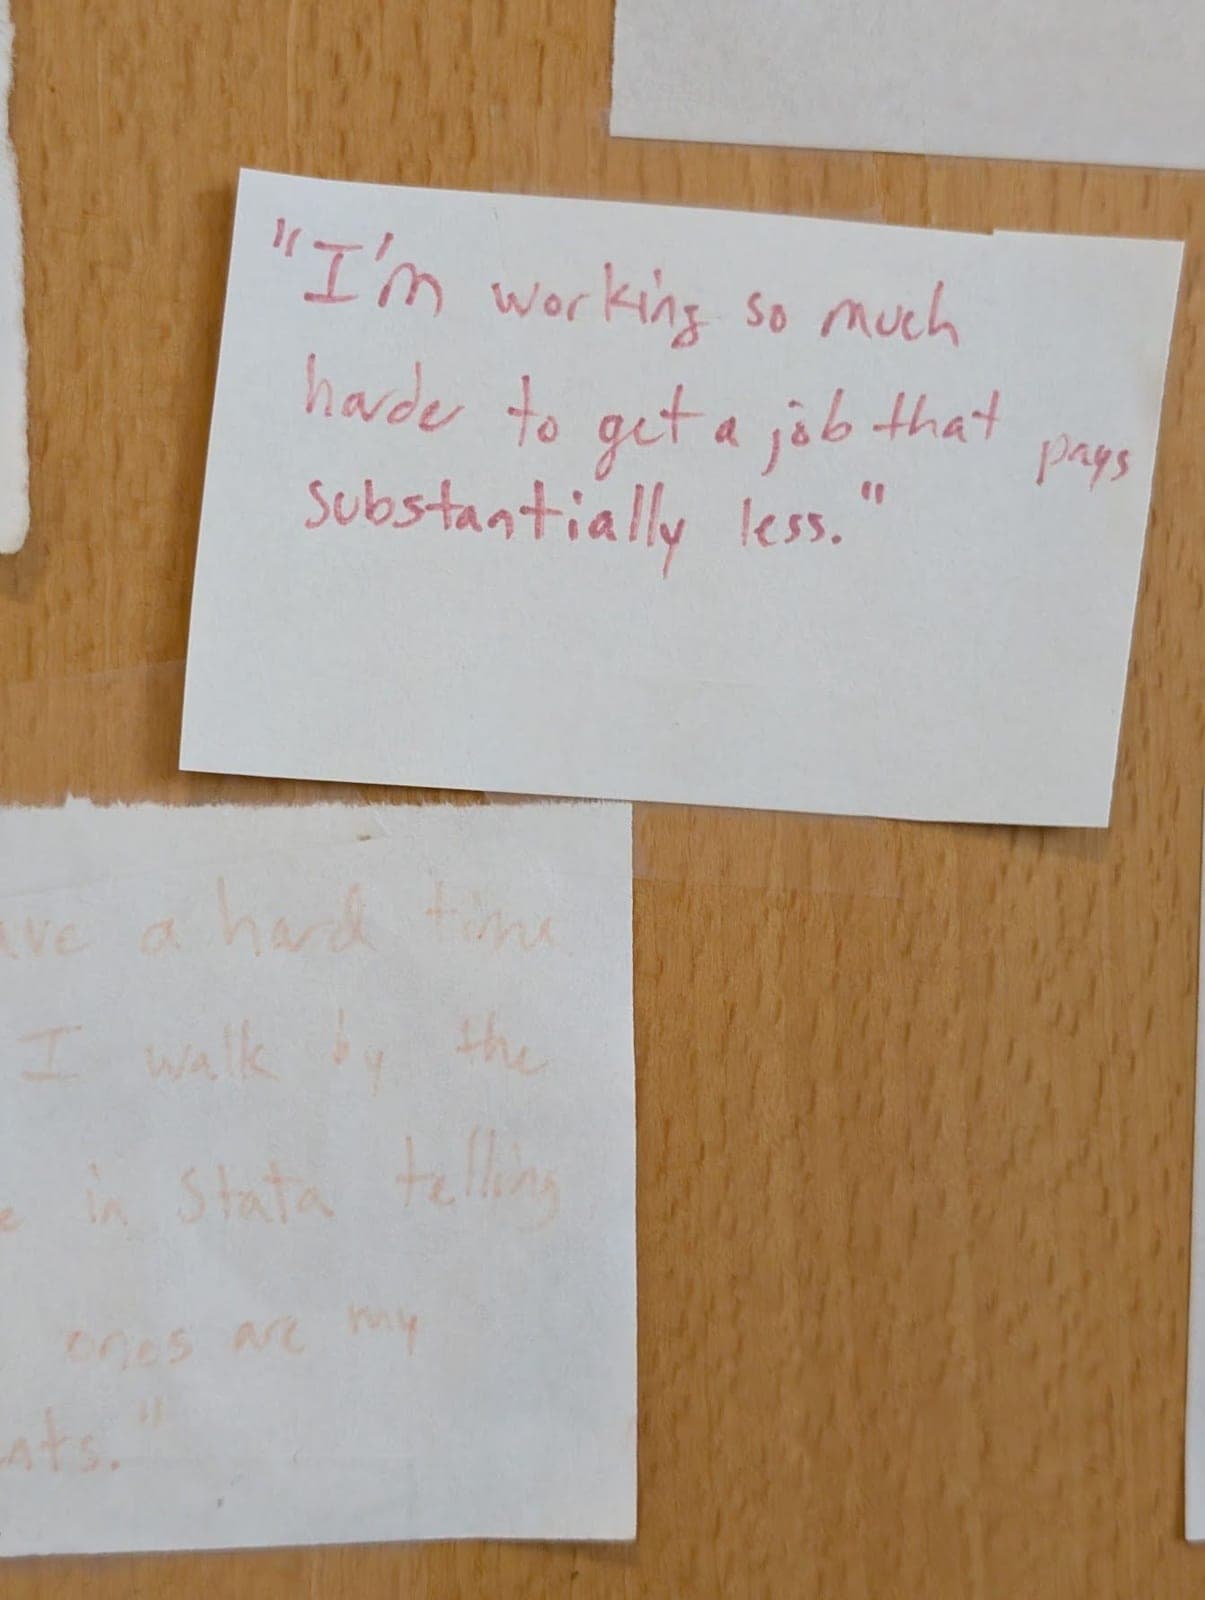 "I'm working so much
harder to get a job that pays
substantially less."
ave a hard time
I walk by the
e in Stata telling
ones are my
nts."